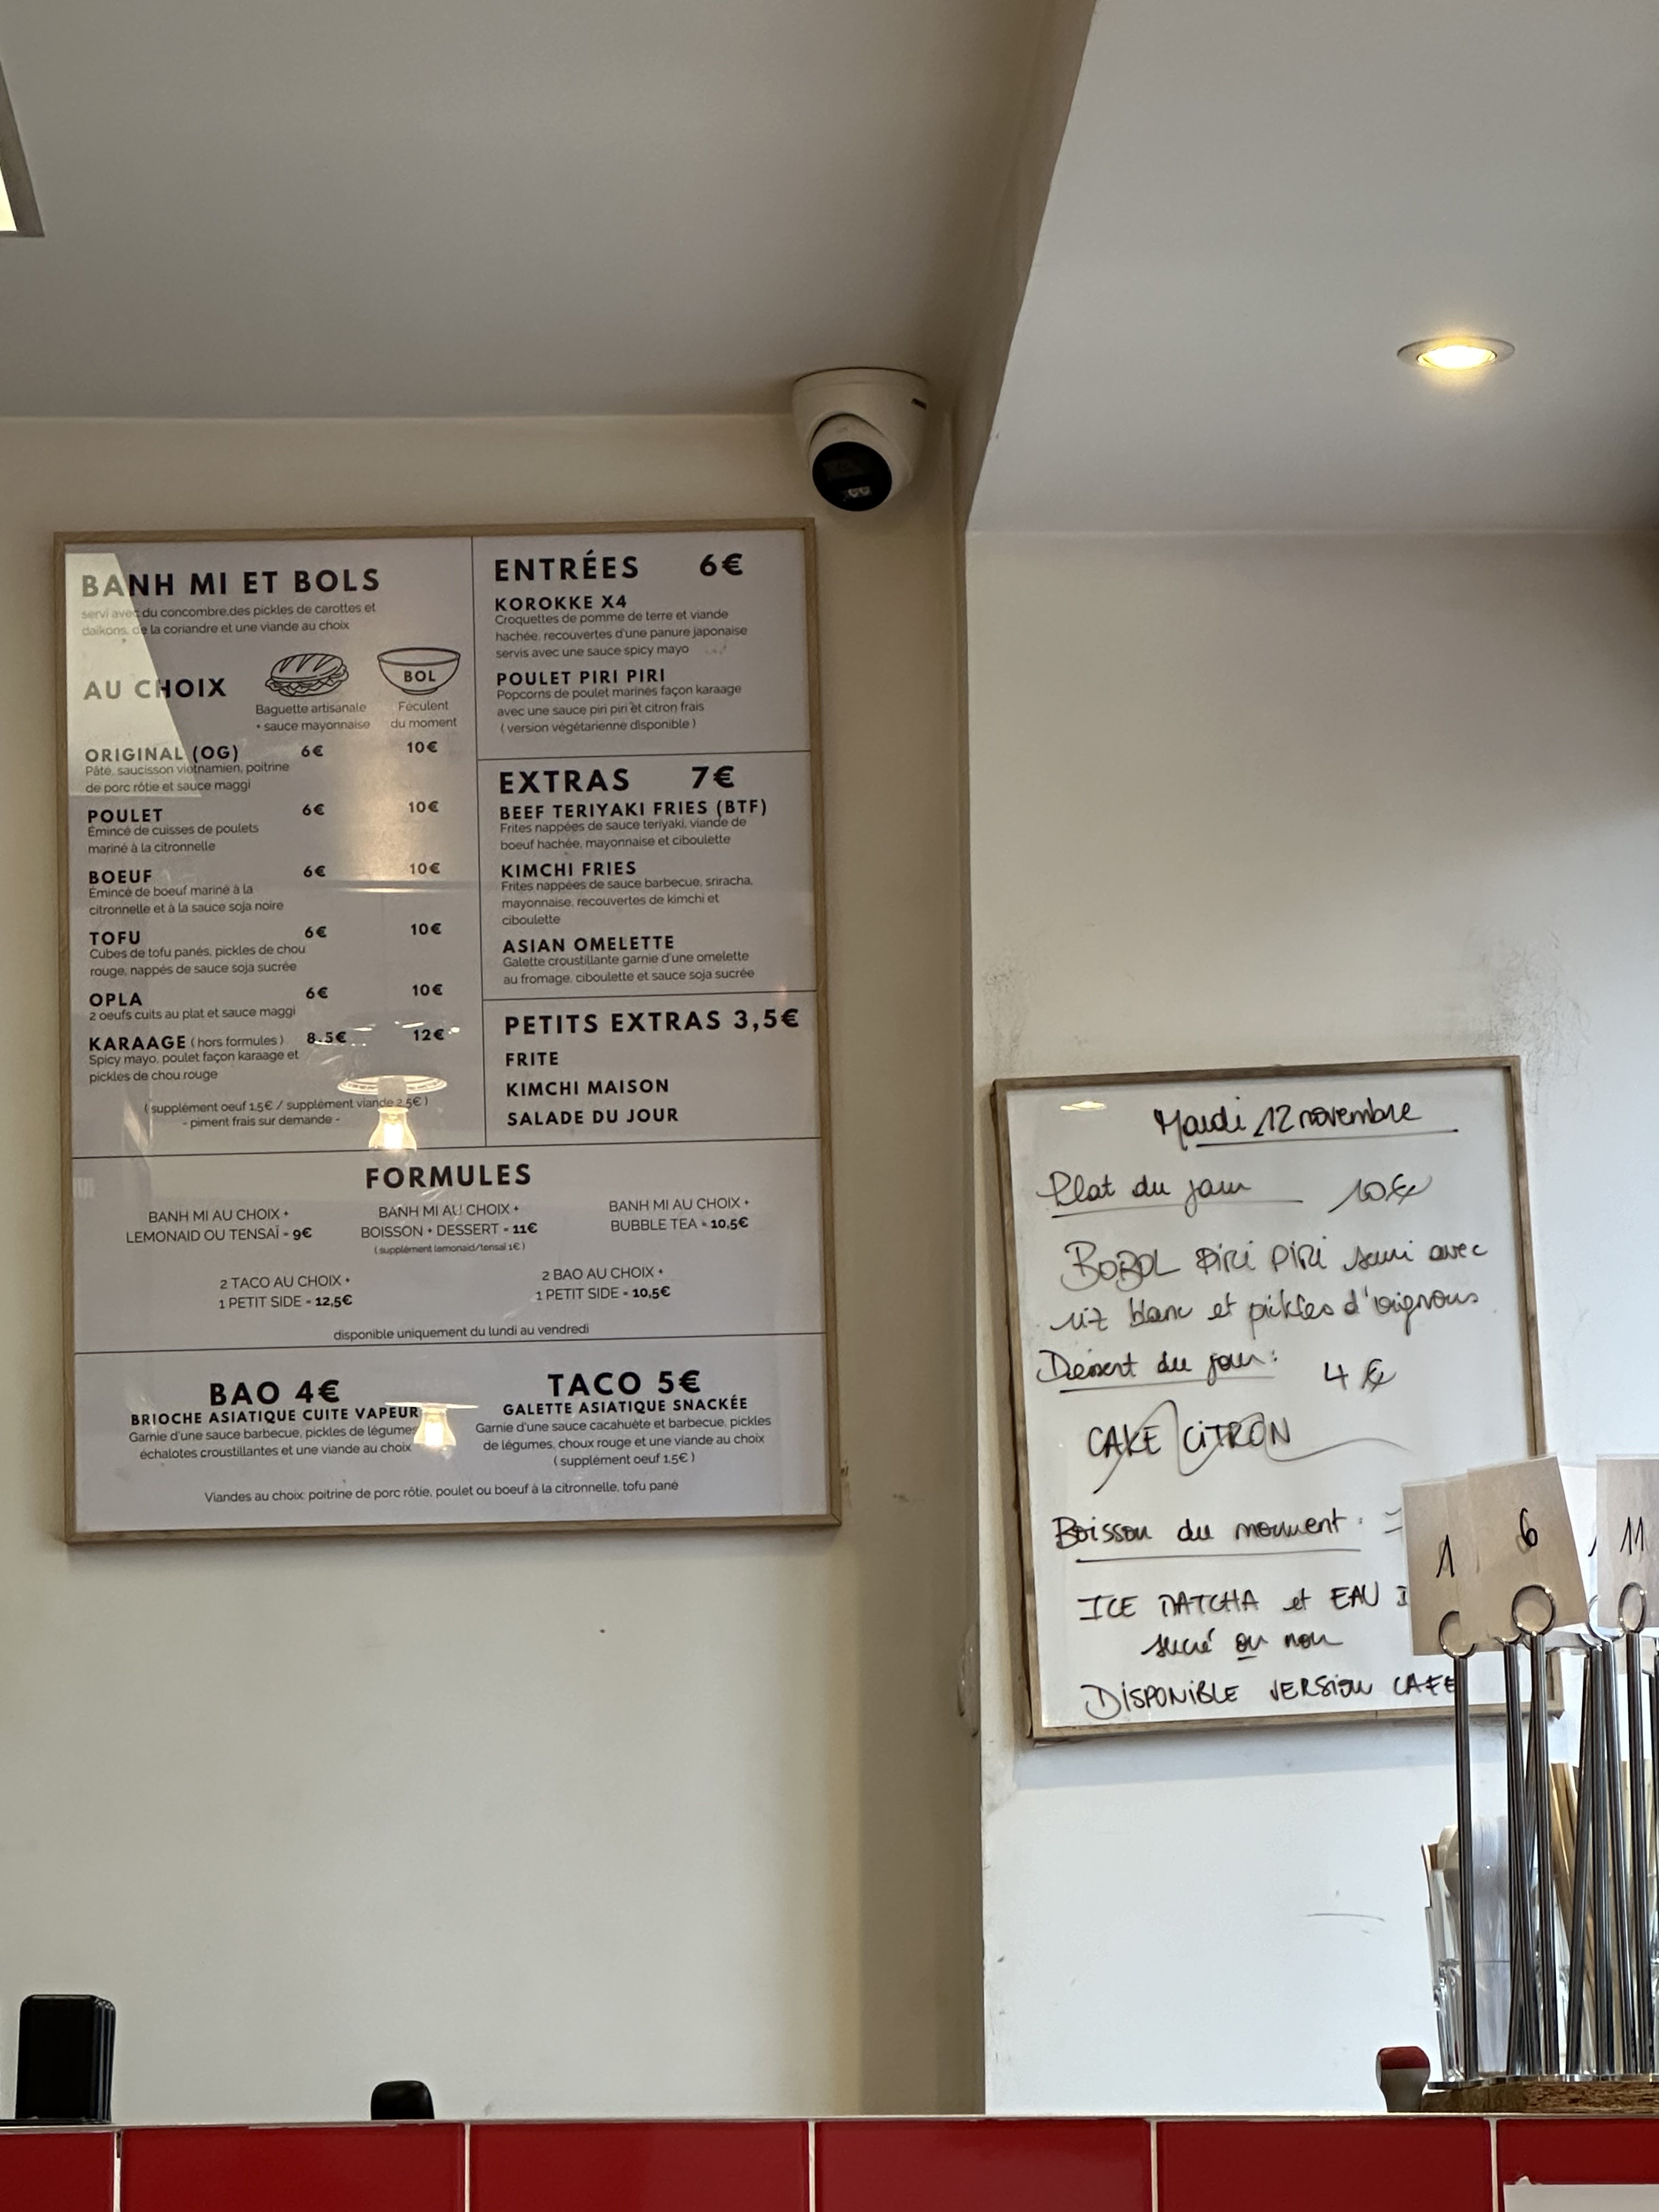 BANH MI ET BOLS
servi avec du concombre,des pickles de carottes et
daikons, de la coriandre et une viande au choix
AU CHOIX
Baguette artisanale
+ sauce mayonnaise
BOL
Féculent
du moment
ORIGINAL (OG) 6€ 10€
Pâté, saucisson vietnamien, poitrine
de porc rôtie et sauce maggi
POULET 6€ 10€
Émincé de cuisses de poulets
mariné à la citronnelle
BOEUF 6€ 10€
Émincé de boeuf mariné à la
citronnelle et à la sauce soja noire
TOFU 6€ 10€
Cubes de tofu panés, pickles de chou
rouge, nappés de sauce soja sucrée
OPLA 6€ 10€
2 oeufs cuits au plat et sauce maggi
KARAAGE ( hors formules ) 8.5€ 12€
Spicy mayo, poulet façon karaage et
pickles de chou rouge
( supplément oeuf 1.5€ / supplément viande 2.5€ )
- piment frais sur demande -
ENTRÉES 6€
KOROKKE X4
Croquettes de pomme de terre et viande
hachée, recouvertes d'une panure japonaise
servis avec une sauce spicy mayo
POULET PIRI PIRI
Popcorns de poulet marinés façon karaage
avec une sauce piri piri et citron frais
( version végétarienne disponible )
EXTRAS 7€
BEEF TERIYAKI FRIES (BTF)
Frites nappées de sauce teriyaki, viande de
boeuf hachée, mayonnaise et ciboulette
KIMCHI FRIES
Frites nappées de sauce barbecue, sriracha,
mayonnaise, recouvertes de kimchi et
ciboulette
ASIAN OMELETTE
Galette croustillante garnie d'une omelette
au fromage, ciboulette et sauce soja sucrée
PETITS EXTRAS 3,5€
FRITE
KIMCHI MAISON
SALADE DU JOUR
FORMULES
BANH MI AU CHOIX +
LEMONAID OU TENSAÏ = 9€
BANH MI AU CHOIX +
BOISSON + DESSERT = 11€
( supplément lemonaid/tensaï 1€ )
BANH MI AU CHOIX +
BUBBLE TEA = 10,5€
2 TACO AU CHOIX +
1 PETIT SIDE = 12,5€
2 BAO AU CHOIX +
1 PETIT SIDE = 10,5€
disponible uniquement du lundi au vendredi
BAO 4€
BRIOCHE ASIATIQUE CUITE VAPEUR
Garnie d'une sauce barbecue, pickles de légumes
échalotes croustillantes et une viande au choix
TACO 5€
GALETTE ASIATIQUE SNACKÉE
Garnie d'une sauce cacahuète et barbecue, pickles
de légumes, choux rouge et une viande au choix
( supplément oeuf 1.5€ )
Viandes au choix: poitrine de porc rôtie, poulet ou boeuf à la citronnelle, tofu pané
Mardi 12 novembre
Plat du jour 10€
BOBOL PIRI PIRI servi avec
riz blanc et pickles d'oignons
Dessert du jour: 4€
CAKE CITRON
Boisson du moment :
ICE MATCHA et EAU
sucré ou non
DISPONIBLE VERSION CAFE
1
6
11